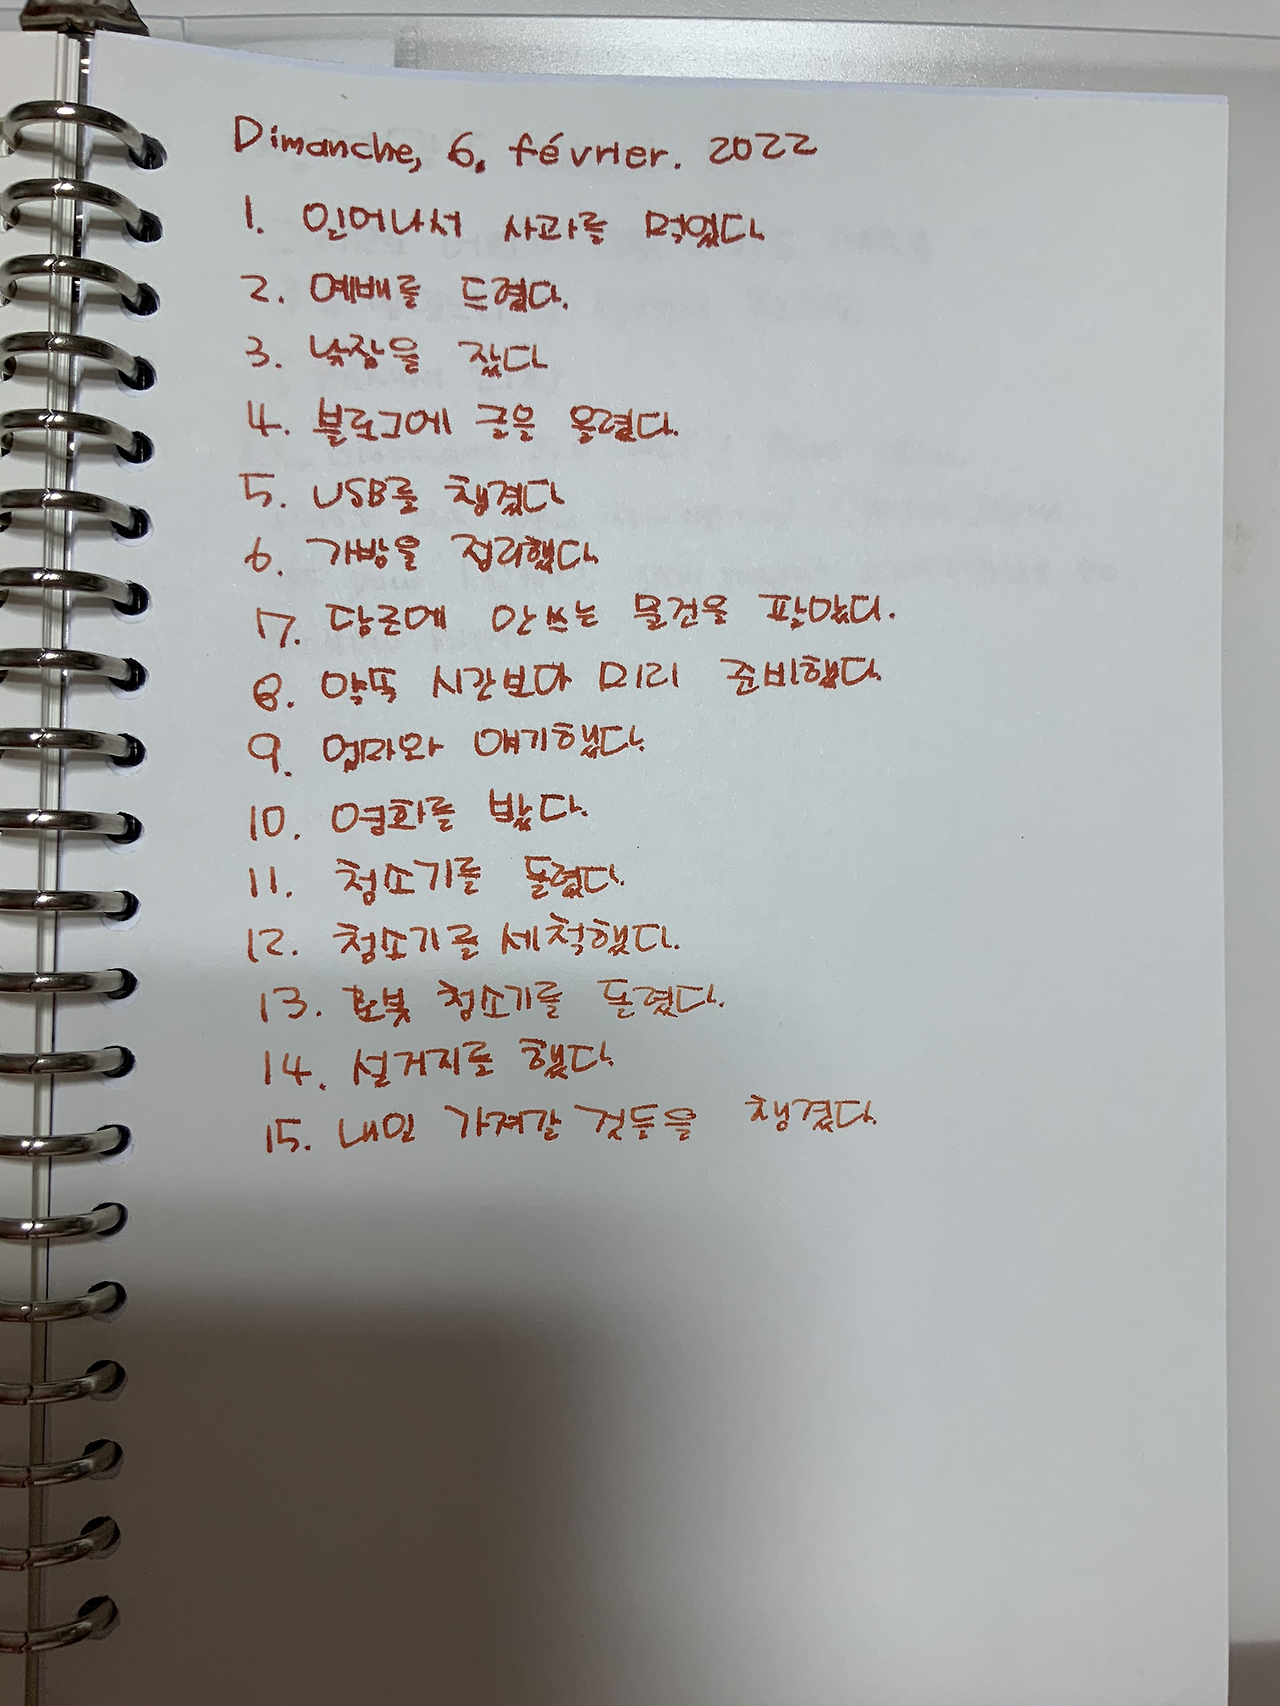 Dimanche, 6. février. 2022
1. 일어나서 사과를 먹었다
2. 예배를 드렸다.
3. 낮잠을 잤다
4. 블로그에 글을 올렸다.
5. USB를 챙겼다
6. 가방을 정리했다.
7. 당근에 안쓰는 물건을 팔았다.
8. 약똑 시간보다 미리 준비했다.
9. 엄마와 얘기했다.
10. 영화를 봤다.
11. 청소기를 돌렸다.
12. 청소기를 세척했다.
13. 로봇 청소기를 돌렸다.
14. 설거지를 했다.
15. 내일 가져갈 것들을 챙겼다.